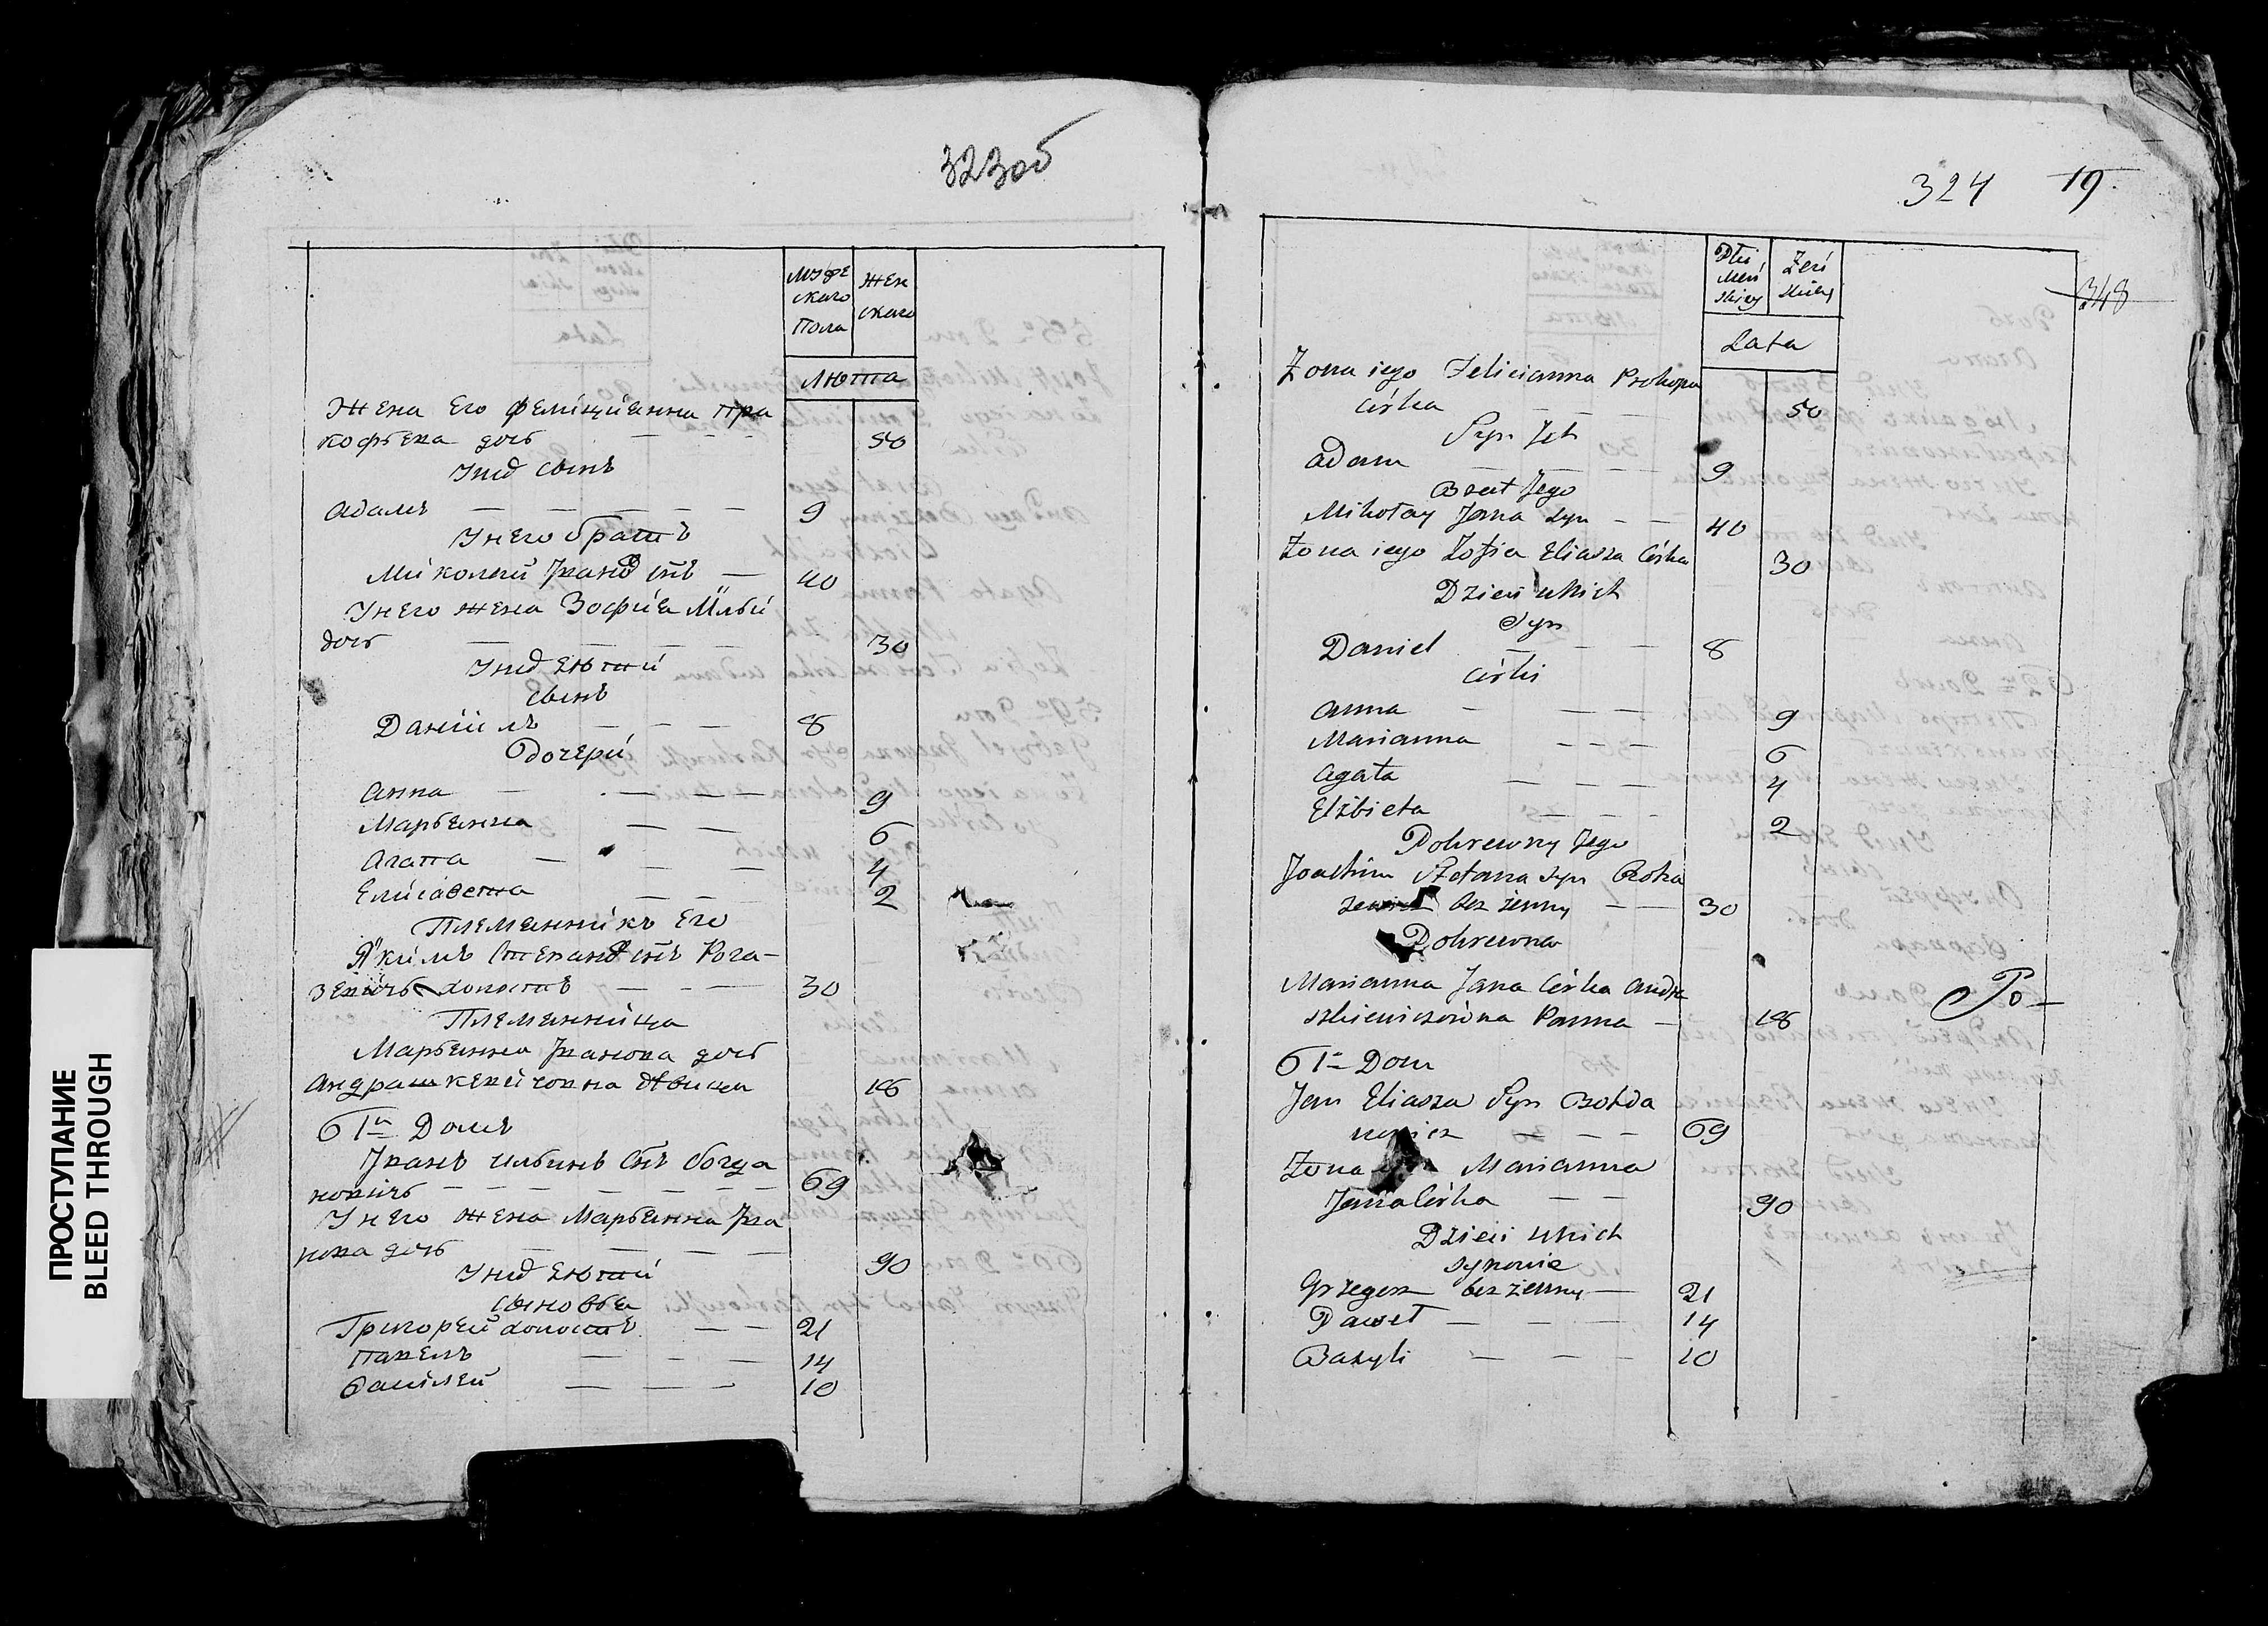 323об
Муже
ского
Пола
Жен
ского
Люта
Жена Его Фелицианна Пра
кофьева дочь 50
У них сынъ
Адамъ 9
У него братъ
Миколай Иванов сынъ 40
У него жена Зофиа Ильи
дочь 30
У них дѣти
сынъ
Даниилъ 8
Дочери
Анна 9
Марьянна 6
Агата 4
Елисавета 2
Племянникъ Его
Якимъ Степанов сынъ Рога-
зевичъ холостъ 30
Племянница
Марьянна Иванова дочь
Андрашкевичовна дѣвица 18
61й Домъ
Иванъ Ильинъ Снъ богда
новичъ 69
У него жена Марьянна Ива
нова дочь 90
У них дѣти
Сыновья
Григорей холостъ 21
Павелъ 14
Василей 10
324 19
348
Płci
Męs
skiey
Żeń
skiey
Lata
Żona iego Felicianna Prokopa
Córka 50
Syn Ich
Adam 9
Brat Jego
Mikołay Jana Syn 40
Żona iego Zofia Eliasza Córka 30
Dzieci u nich
Syn
Daniel 8
Córki
Anna 9
Marianna 6
Agata 4
Elżbieta 2
Pokrewny Jego
Joachim Stefana Syn Roha
bez żenny 30
Pokrewna
Marianna Jana Córka Andra
szkiewiczówna Panna 18
61 Dom
Jan Eliasza Syn Bohda
nowicz 69
Żona Marianna
Jana Córka 90
Dzieci u nich
Synowie
Grzegorz bez żenny 21
Paweł 14
Bazyli 10
Po-
ПРОСТУПАНИЕ
BLEED THROUGH